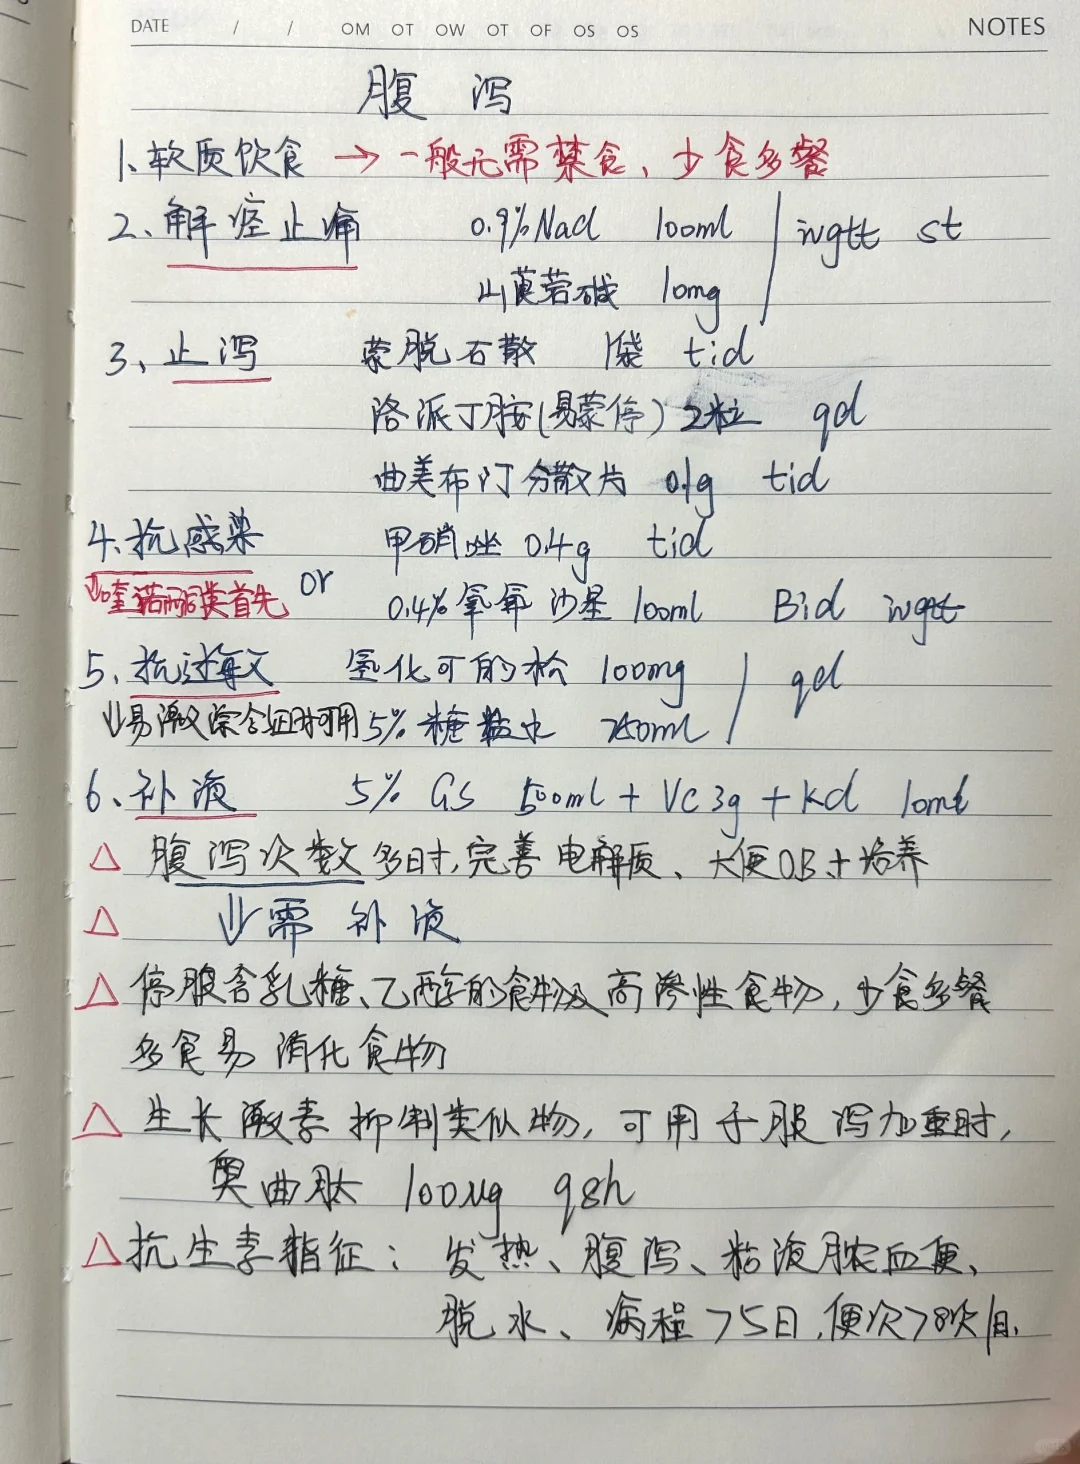 DATE / / OM OT OW OT OF OS OS NOTES
腹泻
1、软质饮食 → 一般无需禁食、少食多餐
2、解痉止痛 0.9%Nacl 100ml ivgtt st
山莨菪碱 10mg
3、止泻 蒙脱石散 1袋 tid
洛派丁胺(易蒙停) 2粒 qd
曲美布汀分散片 0.1g tid
4、抗感染 甲硝唑 0.4g tid
喹诺酮类首先 or 0.4%氧氟沙星 100ml Bid ivgtt
5、抗过敏 氢化可的松 100mg qd
↓易激综合征时可用 5%糖盐水 250ml
6、补液 5% GS 500ml + Vc 3g + Kcl 10ml
△ 腹泻次数多时,完善电解质、大便OB+培养
△ ↓需补液
△ 停服含乳糖、乙醇的食物及高渗性食物,少食多餐
多食易消化食物
△ 生长激素抑制类似物,可用于腹泻加重时,
奥曲肽 100ug q8h
△ 抗生素指征: 发热、腹泻、粘液脓血便、
脱水、病程>5日,便次>8次/日.